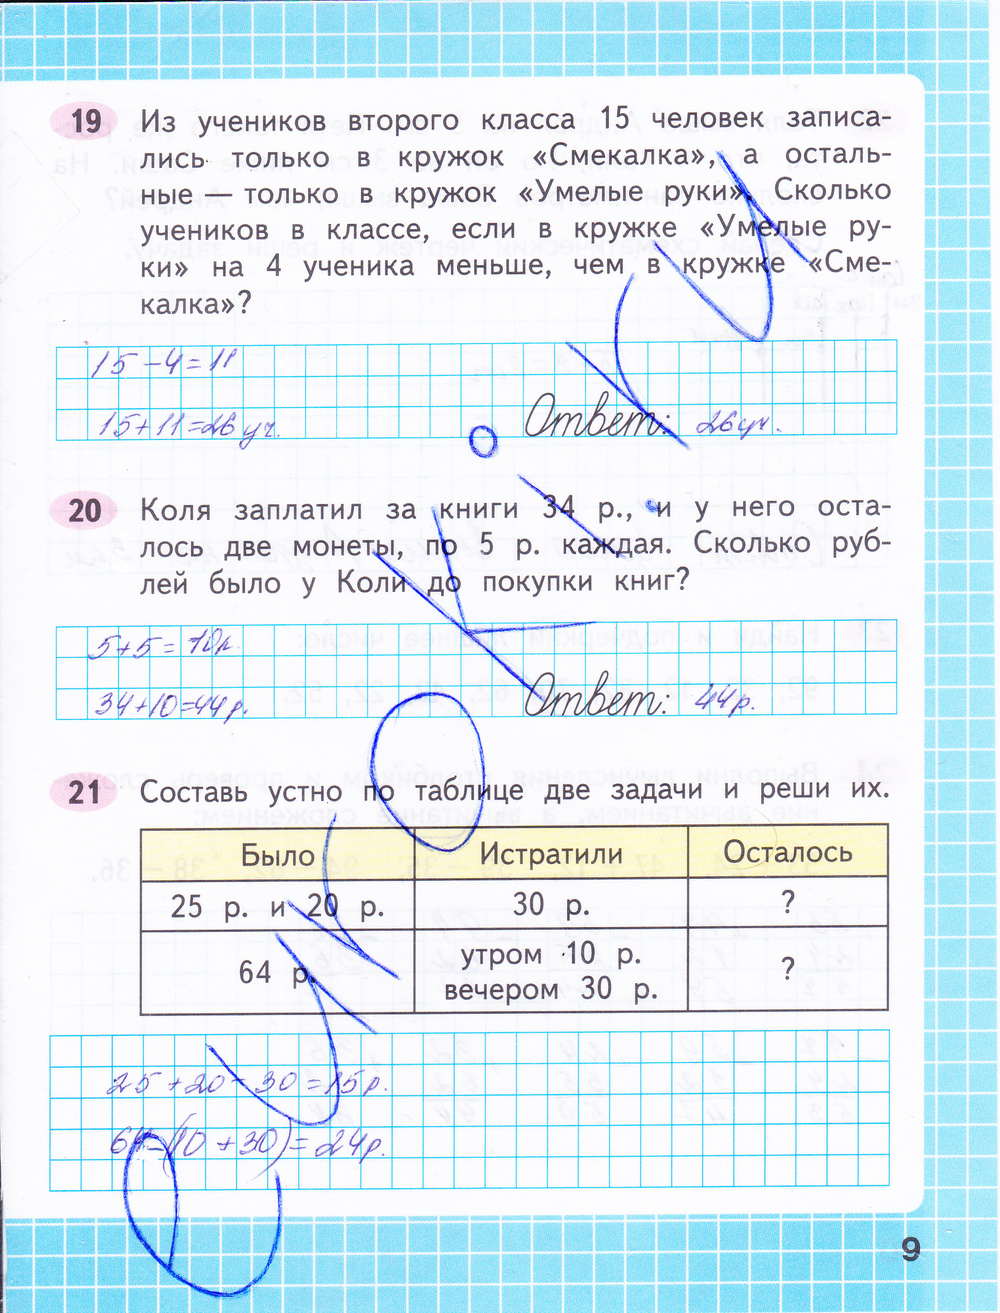 19 Из учеников второго класса 15 человек записа-
лись только в кружок «Смекалка», а осталь-
ные — только в кружок «Умелые руки». Сколько
учеников в классе, если в кружке «Умелые ру-
ки» на 4 ученика меньше, чем в кружке «Сме-
калка»?
15-4=11
15+11=26 уч. Ответ: 26 уч.
20 Коля заплатил за книги 34 р., и у него оста-
лось две монеты, по 5 р. каждая. Сколько руб-
лей было у Коли до покупки книг?
5+5=10р.
34+10=44р. Ответ: 44р.
21 Составь устно по таблице две задачи и реши их.
Было Истратили Осталось
25 р. и 20 р. 30 р. ?
64 р. утром 10 р. ?
вечером 30 р.
25+20-30=15р.
64-(10+30)=24р.
9